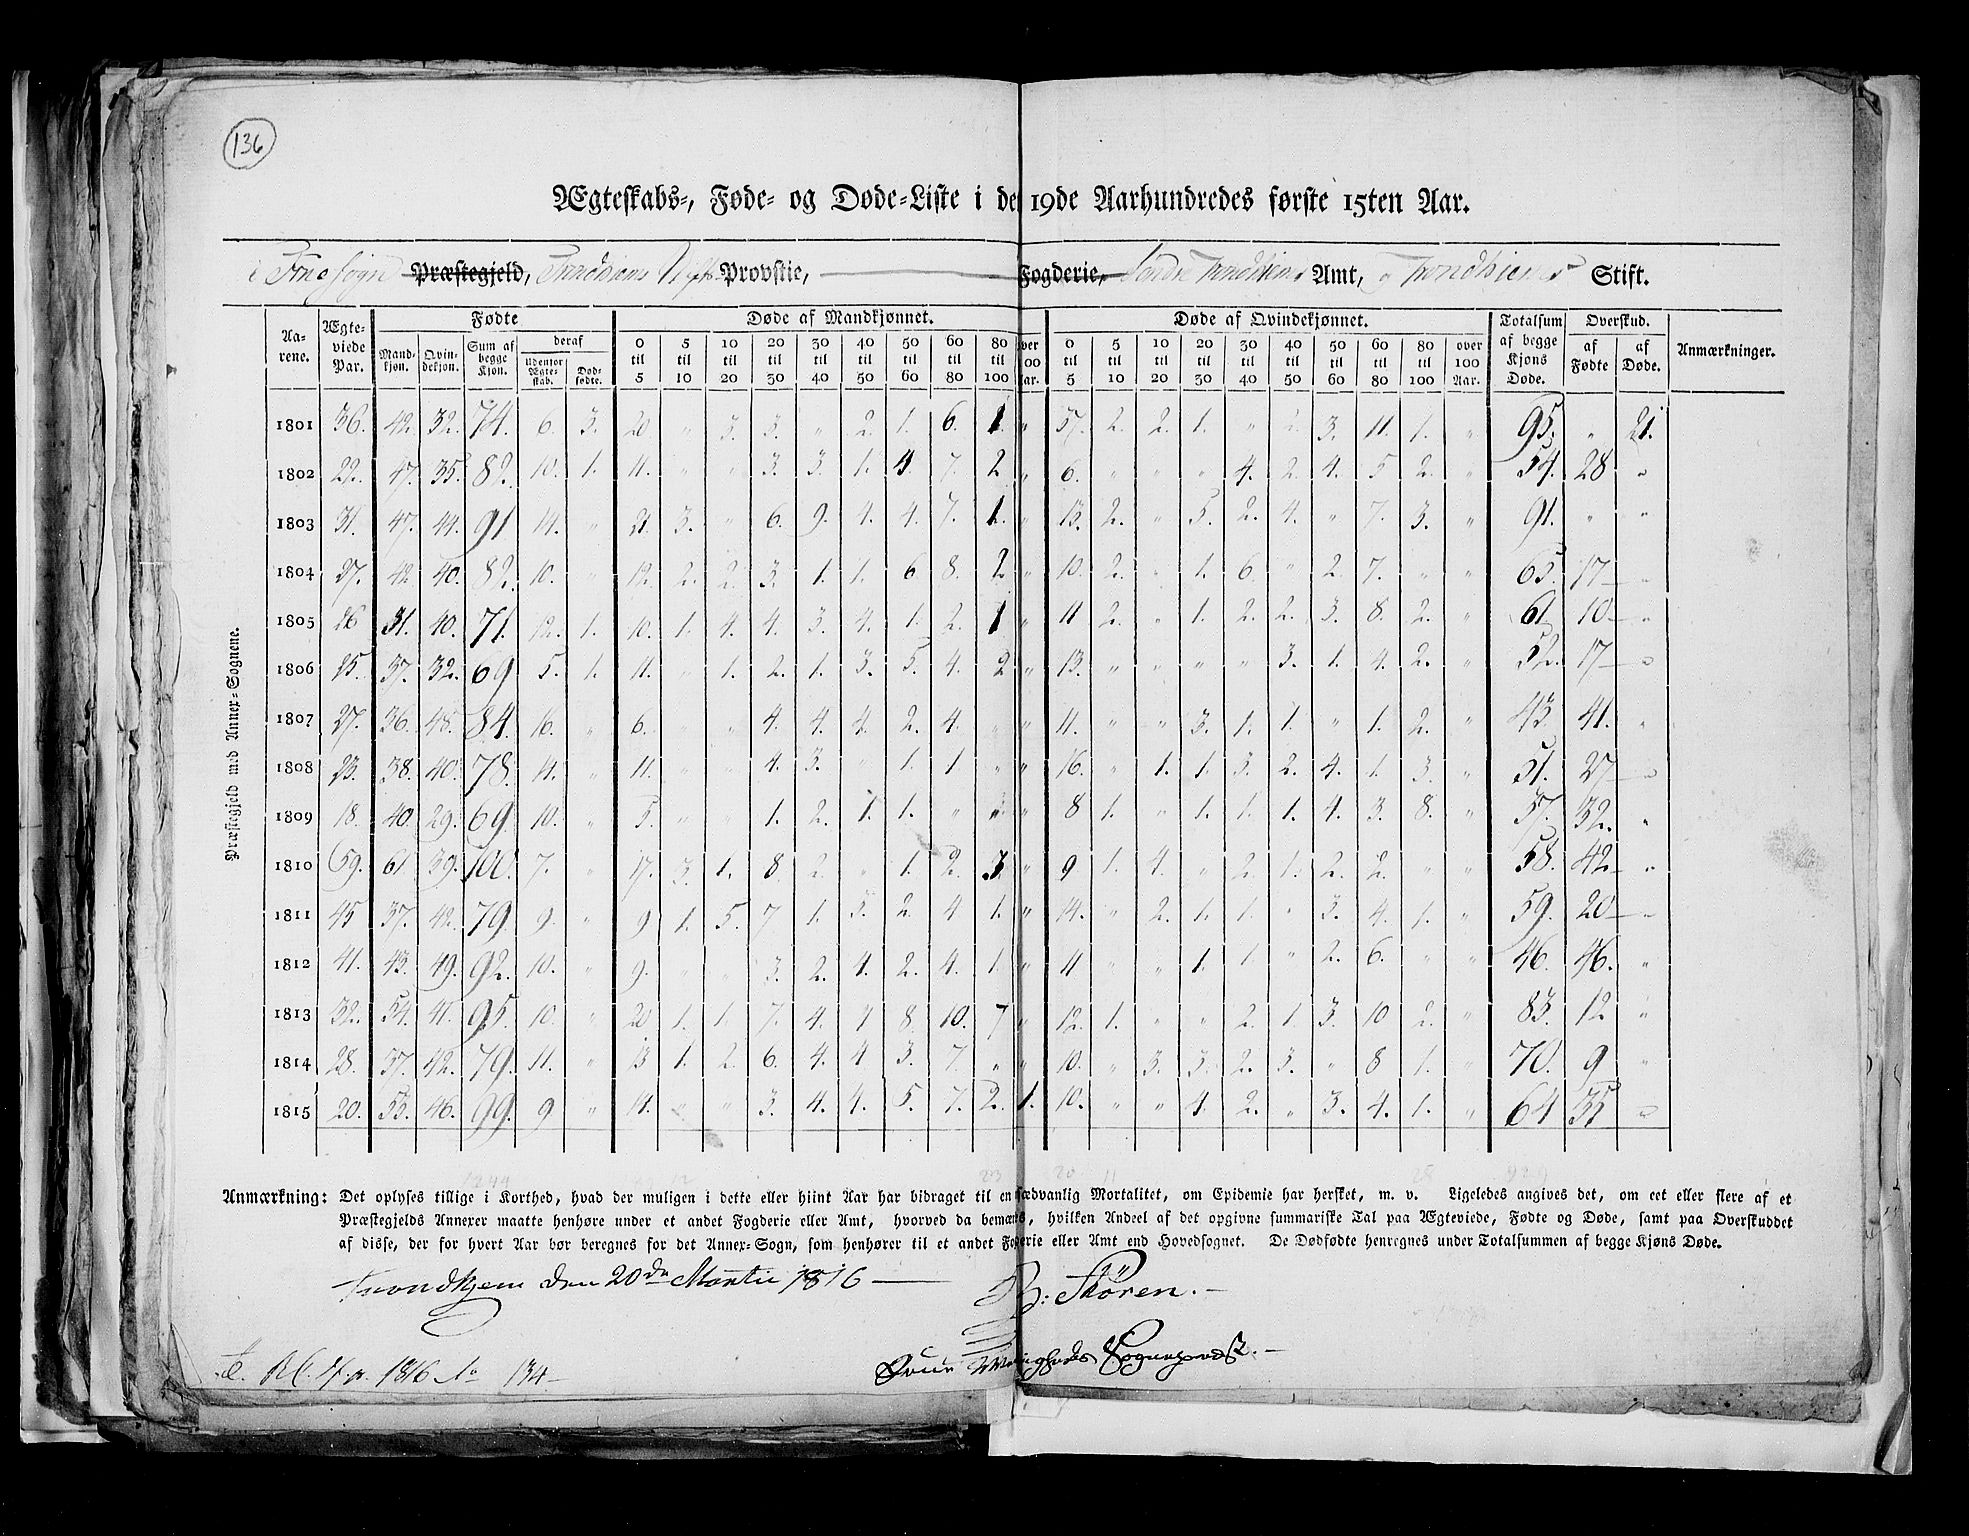 136
Ægteskabs-, Føde- og Døde-Liste i det 19de Aarhundredes første 15ten Aar.
Præstegjeld, Provstie, Fogderie, Amt, Stift.
Præstegjeld med Annex-Sognene.
Aarene. Ægteviede Par. Fødte Døde af Mandkjønnet. Døde af Qvindekjønnet. Totalsum af begge Kjøns Døde. Overskud. Anmærkninger.
Mandkjøn. Qvindekjøn. Sum af begge Kjøn. deraf Udenfor Ægteskab. Dødfødte. 0 til 5 5 til 10 10 til 20 20 til 30 30 til 40 40 til 50 50 til 60 60 til 80 80 til 100 over 100 Aar. 0 til 5 5 til 10 10 til 20 20 til 30 30 til 40 40 til 50 50 til 60 60 til 80 80 til 100 over 100 Aar. af Fødte af Døde.
1801 36. 42. 32. 74. 6. 3. 20. " 3. 3. " 2. 1. 6. 1. " 37. 2. 2. 1. " 2. 3. 11. 1. " 95. " 21.
1802 22. 47. 35. 82. 10. 1. 11. " " 3. 3. 1. 4. 7. 2 " 6. " " " 4. 2. 4. 5 2. " 54. 28 "
1803 31. 47. 44. 91 14. " 21 3. " 6. 9. 4. 4. 7. 1. " 13. 2. " 5. 2. 4. " 7. 3. " 91. " "
1804 27. 42. 40. 82. 10. " 12. 2. 2. 3. 1. 1. 6 8. 2 " 10. 2. " 1. 6. " 2. 7. " " 65. 17 "
1805 26 31. 40. 71. 12. 1. 10. 1. 4. 4. 3. 4. 1. 2. 1 " 11 2. " 1. 2. 2. 3. 8. 2. " 61 10 "
1806 25. 37. 32. 69 5. 1. 11. " 1. 2. 1. 3. 5. 4. 2 " 13. " " " " 3. 1. 4. 2. " 52. 17 "
1807 27. 36. 48. 84. 16. " 6. " " 4. 4. 4. 2. 4. " " 11. " " 3. 1. 1. " 1. 2. " 43. 41. "
1808 23. 38. 40. 78. 11. " 11. " " 4. 3. " 1. 1 " " 16. " 1. 1. 3. 2. 4. 1. 3. " 51. 27 "
1809 18. 40. 29. 69. 10. " 5. " " 1. 2. 1. 1. " " " 8 1. " 1. 1. 1. 4. 3. 8. " 37. 32. "
1810 59. 61 39. 100. 7. " 17. 3. 1. 8 2. " 1. 2. 3. " 9 1. 4. " 2. 1. 2. 2. " " 58. 42 "
1811 45 37. 42. 79. 9. " 9 1. 5. 7 1. 3. 2. 4 1. " 14. " 2. 1. 1. " 3. 4. 1. " 59. 20 "
1812 41. 43. 49. 92. 10. " 9. " " 3. 2. 4. 2. 4. 1. " 11 " " 1. 1. " 2. 6. " " 46. 46. "
1813 32. 54. 41. 95. 10. " 20 1. 1. 7. 4. 4 8. 10. 7 " 12. 1. " " 2. 1. 3. 10 2. " 83. 12 "
1814 28. 37. 42. 79. 11. " 13 1. 2. 6. 4. 4 3. 7. " " 10. " 3. 3. 2. 3. " 8 1. " 70. 9 "
1815 20. 53. 46. 99. 9 " 11. " " 3. 4. 4. 5. 7. 2. 1. 10. " " 4. 2. " 3. 4. 1. " 64 35 "
Anmærkning: Det oplyses tillige i Korthed, hvad der muligen i dette eller hiint Aar har bidraget til en sædvanlig Mortalitet, om Epidemie har hersket, m. v. Ligeledes angives det, om eet eller flere af et
Præstegjelds Annexer maatte henhøre under et andet Fogderie eller Amt, hvorved da bemærkes, hvilken Andeel af det opgivne summariske Tal paa Ægteviede, Fødte og Døde, samt paa Overskuddet
af disse, der for hvert Aar bør beregnes for det Annex-Sogn, som henhører til et andet Fogderie eller Amt end Hovedsognet. De Dødfødte henregnes under Totalsummen af begge Kjøns Døde.
Trondhjem den 20de Martii 1816
B: Stören.
1816 No 134